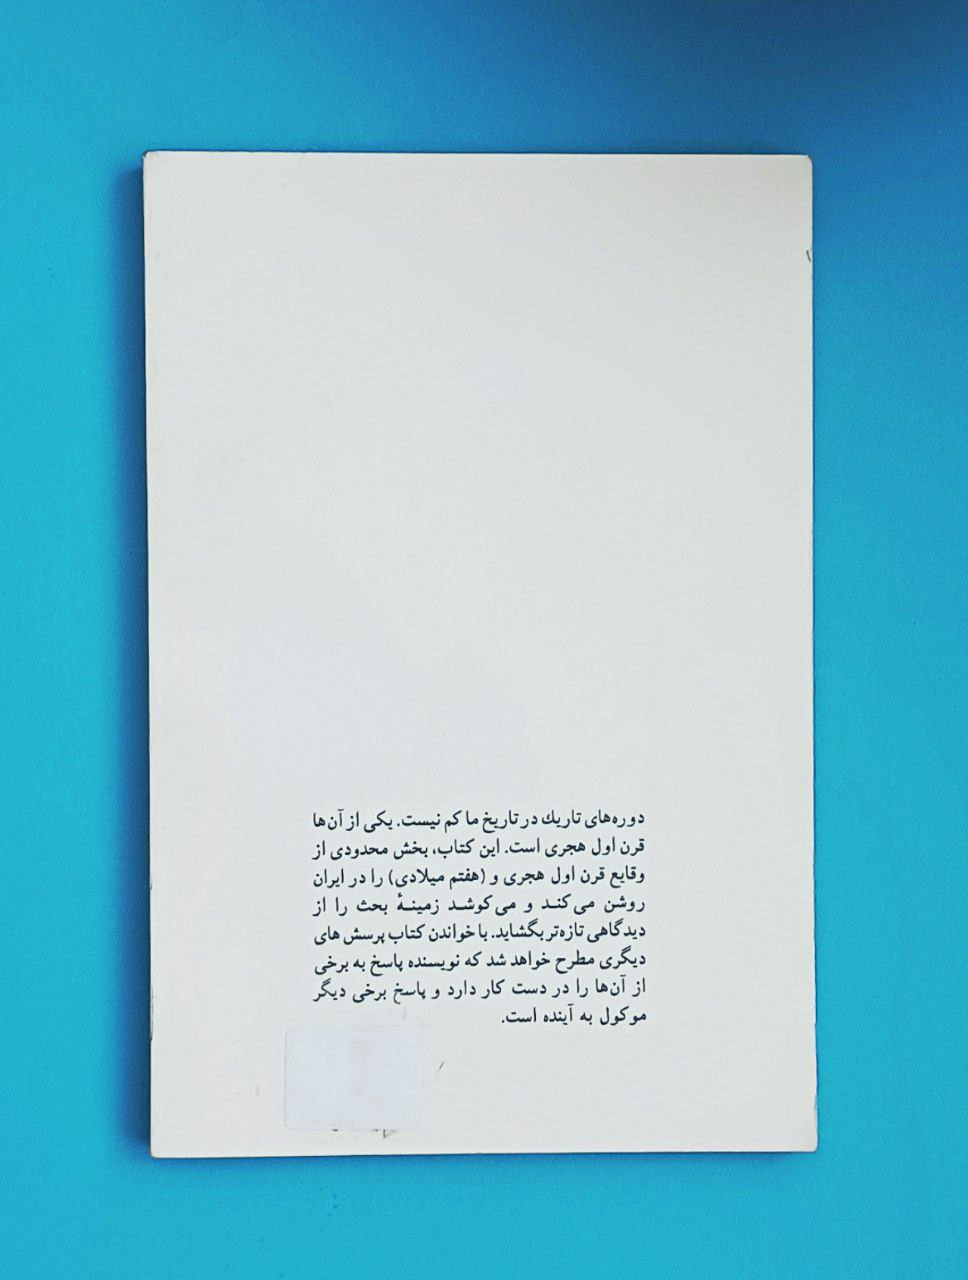 دوره‌های تاریك در تاریخ ما کم نیست. یکی از آن‌ها
قرن اول هجری است. این کتاب، بخش محدودی از
وقایع قرن اول هجری و (هفتم میلادی) را در ایران
روشن می‌کند و می‌کوشد زمینهٔ بحث را از
دیدگاهی تازه‌تر بگشاید. با خواندن کتاب پرسش های
دیگری مطرح خواهد شد که نویسنده پاسخ به برخی
از آن‌ها را در دست کار دارد و پاسخ برخی دیگر
موکول به آینده است.